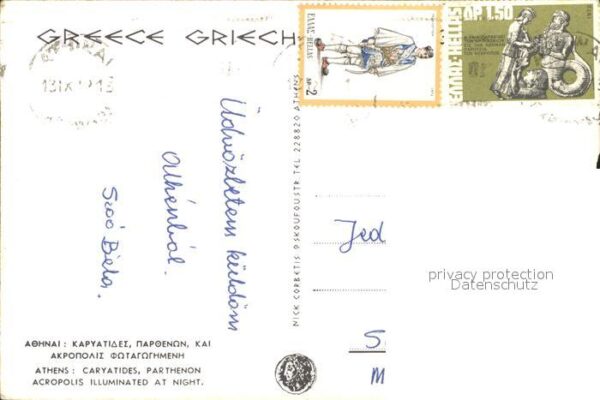 GREECE GRIECH
ΕΛΛΑΣ HELLAS
ΔΡ.2
ΕΛΛΑΣ-HELLAS
ΔΡ. 1.50
Üdvözletem küldöm
Athénból.
Soó Béla.
NICK GORBETIS 9 SKOUFOU STR TEL 228820 ATHENS
Jed
S
M
privacy protection
Datenschutz
ΑΘΗΝΑΙ : ΚΑΡΥΑΤΙΔΕΣ, ΠΑΡΘΕΝΩΝ, ΚΑΙ
ΑΚΡΟΠΟΛΙΣ ΦΩΤΑΓΩΓΗΜΕΝΗ
ATHENS : CARYATIDES, PARTHENON
ACROPOLIS ILLUMINATED AT NIGHT.